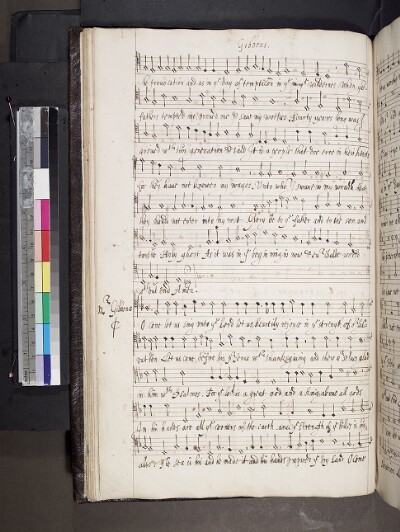 Gibbons.
provocation and as in yͤ day of temptation in yͤ wildernes. When yoʳ
fathers tempted me proved me & saw my workes. fourty yeares long was I
grieved wᵗʰ this generation & said It is a people that doe erre in their hearts
for they have not knowne my wayes. Unto whō I sware in my wrath that
they should not enter into my rest. Glory be to yͤ father and to the son and
to the Holy ghost. As it was in yͤ beginning is now & ever shalbe world
out end. Amen.
Mʳ Gibbons
O Come let us sing unto yͤ Lord let us heartily rejoice in yͤ strength of oʳ sal-
vation Let us come before his presence wᵗʰ thanksgiving and shew oʳ selves glad
in him wᵗʰ Psalmes. For yͤ Lord is a great god and a king above all gods
In his hands are all yͤ corners of the earth and yͤ strength of yͤ hills is his
also. The sea is his and he made it and his hands prepared yͤ dry land. O come